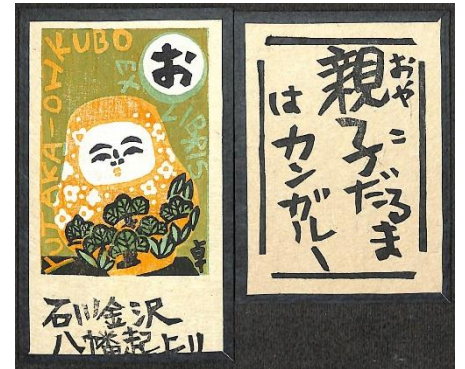 YUTAKA-OHKUBO
EX
LIBRIS
お
貞
石川金沢
八幡起上り
親子だるま
おやこ
はカンガルー